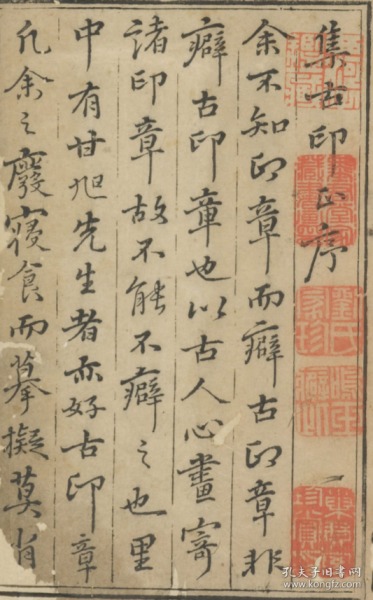 集古印正序
余不知印章而癖古印章非
癖古印章也以古人心畫寄
諸印章故不能不癖之也里
中有甘旭先生者亦好古印章
凡余之廢寢食而摹擬莫肖
孔夫子旧书网
www.kongfz.com